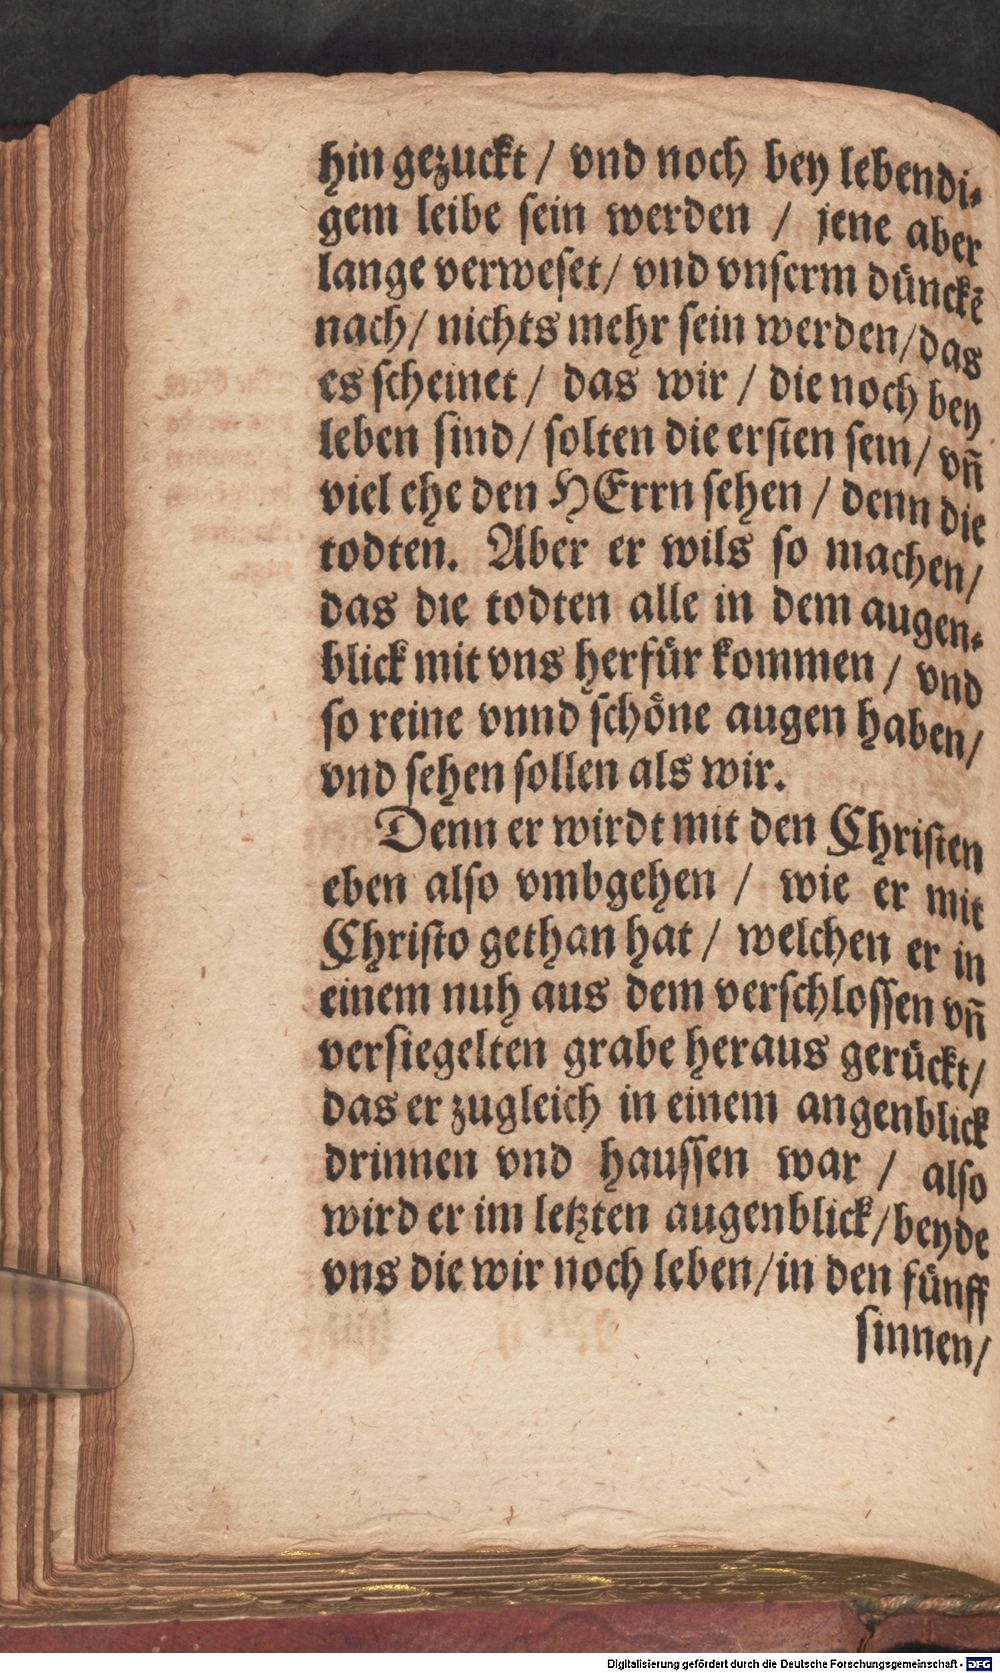 hin gezuckt / vnd noch bey lebendi⸗
gem leibe sein werden / jene aber
lange verweset / vnd vnserm dünckẽ
nach / nichts mehr sein werden / das
es scheinet / das wir / die noch bey
leben sind / solten die ersten sein / vñ
viel ehe den HErrn sehen / denn die
todten. Aber er wils so machen /
das die todten alle in dem augen⸗
blick mit vns herfür kommen / vnd
so reine vnnd schöne augen haben /
vnd sehen sollen als wir.
Denn er wirdt mit den Christen
eben also vmbgehen / wie er mit
Christo gethan hat / welchen er in
einem nuh aus dem verschlossen vñ
versiegelten grabe heraus gerückt /
das er zugleich in einem angenblick
drinnen vnd haussen war / also
wird er im letzten augenblick / beyde
vns die wir noch leben / in den fünff
sinnen /
Digitalisierung gefördert durch die Deutsche Forschungsgemeinschaft - DFG